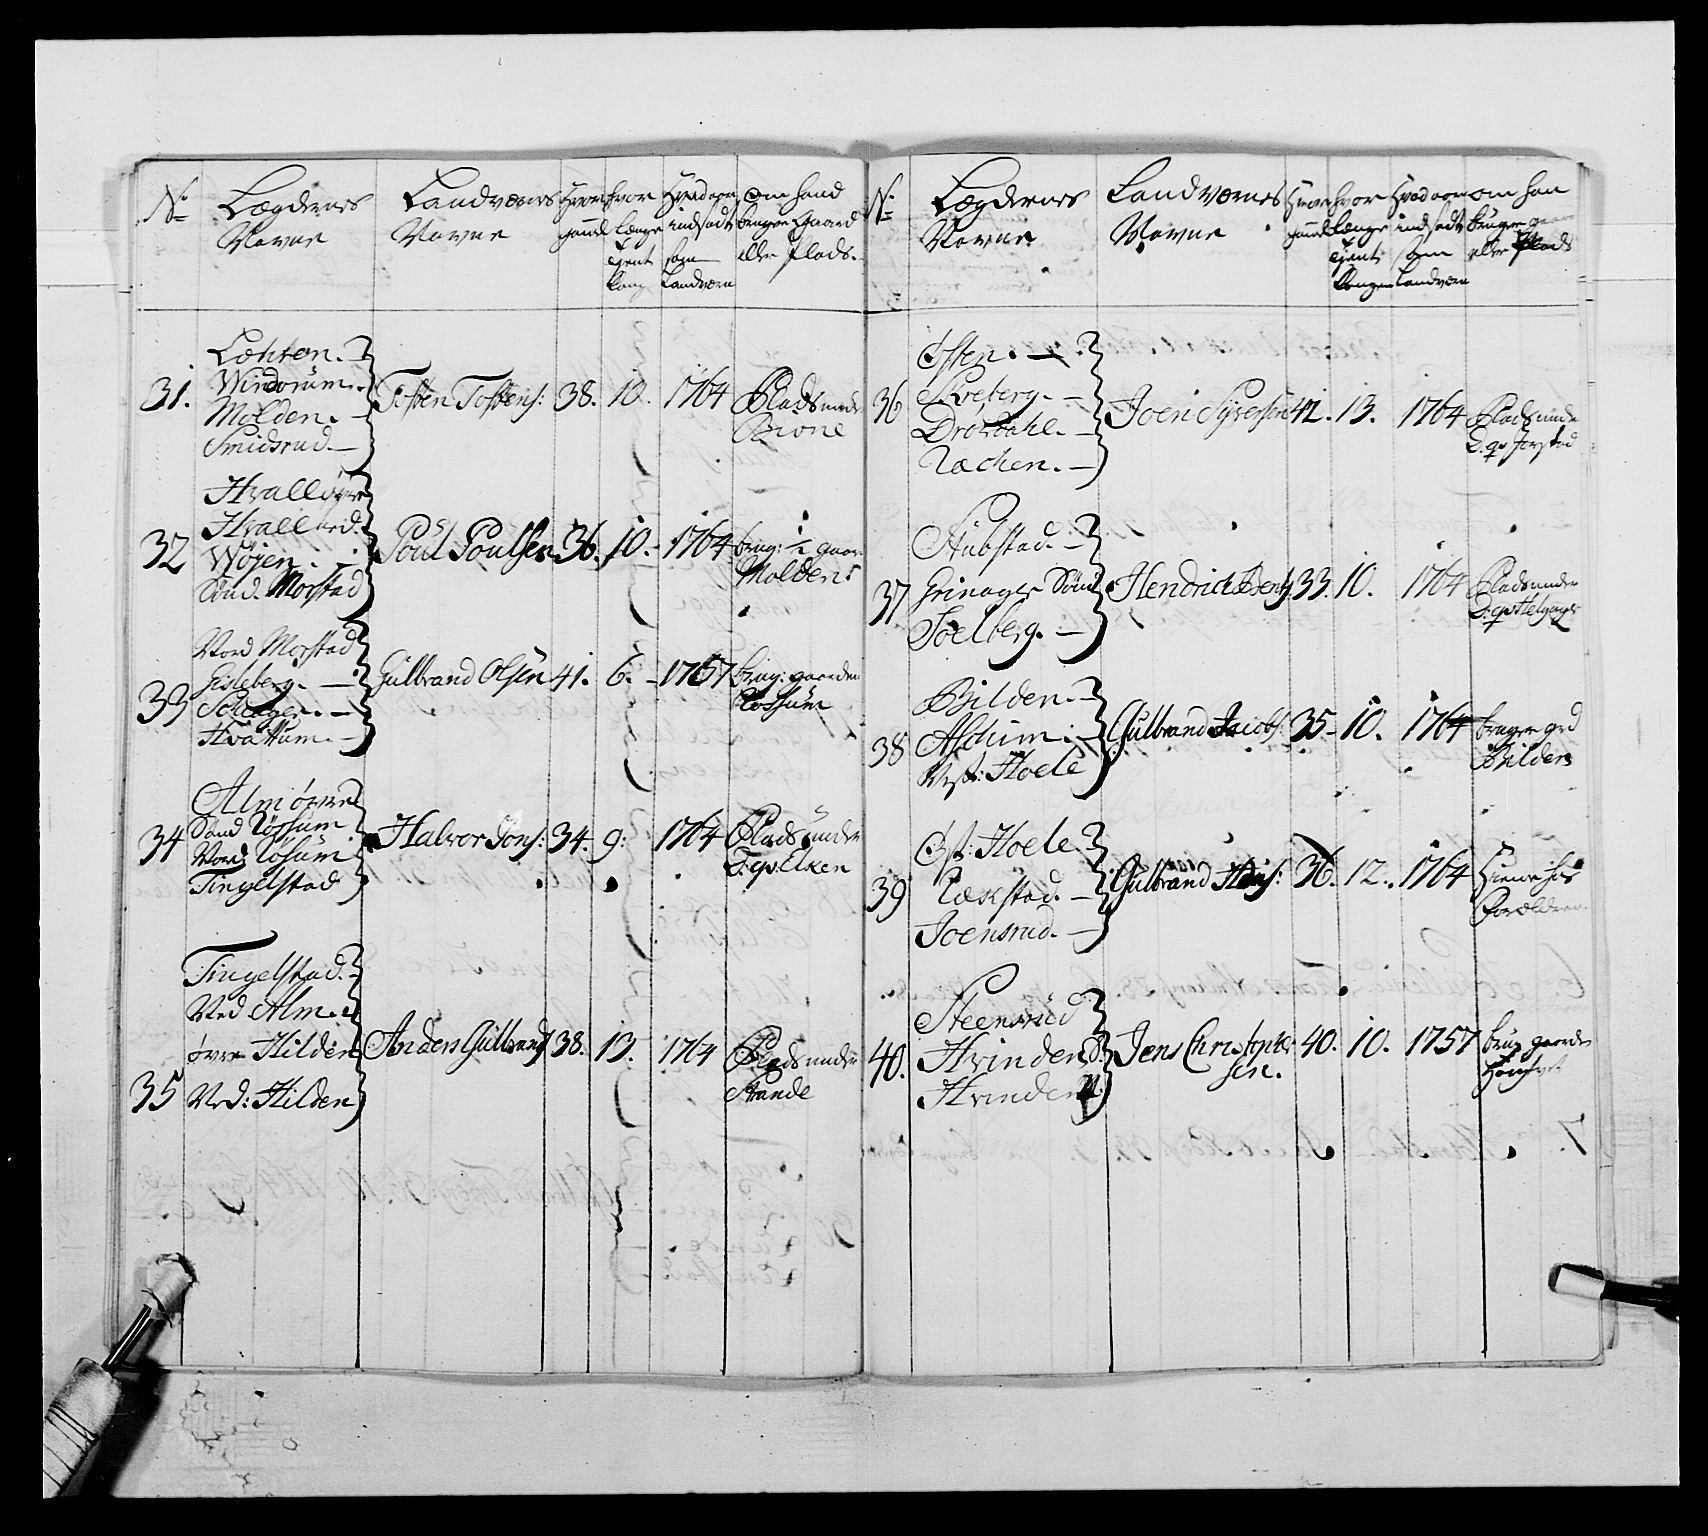 No
Lægdernes
Navne
Landværnes
Navne
Hvor
gammel
hvor
længe
tient
kong
Hvad aar
indsadt
som
Landværn
om hand
bruger Gaard
eller Plads.
31.
Lohren.
Windorum.
Molden.
Smidsrud.
Tosten Tostens:
38.
10.
1764
Plads under
Brone
32
Hvalløvre
Hvall nrd.
Wøjen.
Sønd. Morstad
Poul Poulsen
36.
10.
1764
brug: 1/2 gaar
Molden
33
Nord Morstad
Gisleberg.
Schiager.
Hvattum.
Gulbrand Olsen
41.
6.
1757
brug: gaarden
Rossum
34
Alm øvre
Sønd Rossum
Nord Rosum
Tingelstad
Halvor Jons:
34.
9:
1764
Plads under
D: gr Elken
35
Tingelstad.
Ned Alm.
øvre Hilden
Ned: Hilden
Anders Gulbrands
38.
13.
1764
Plads under
Strande
No
Lægdernes
Navne
Landværnes
Navne
Hvor
gammel
hvor
længe
tient
kongen
Hvad aar
indsadt
som
Landværn
om han
bruger gaard
eller Plads
36
Østen.
Skeberg.
Drøvdahl.
Rachen.
Joen Syversen
42.
13.
1764
Plads under
D: gr Jorstad
37
Stubstad.
Grinager Sønd
Soelberg.
Hendrich Ens:
33.
10.
1764
Plads under
D: gr Helgager
38
Bilden.
Aschim.
Vest: Hoele
Gulbrand Jacobs:
35
10.
1764
bruger grd
Bilden
39
Øst: Hoele
Rækstad.
Joensrud.
Gulbrand Hans:
36.
12.
1764
Hiemme hos
Forældrene
40.
Steensrud
Hvinden S.
Hvinden N.
Jens Christopher
sen.
40.
10.
1757
brug gaarden